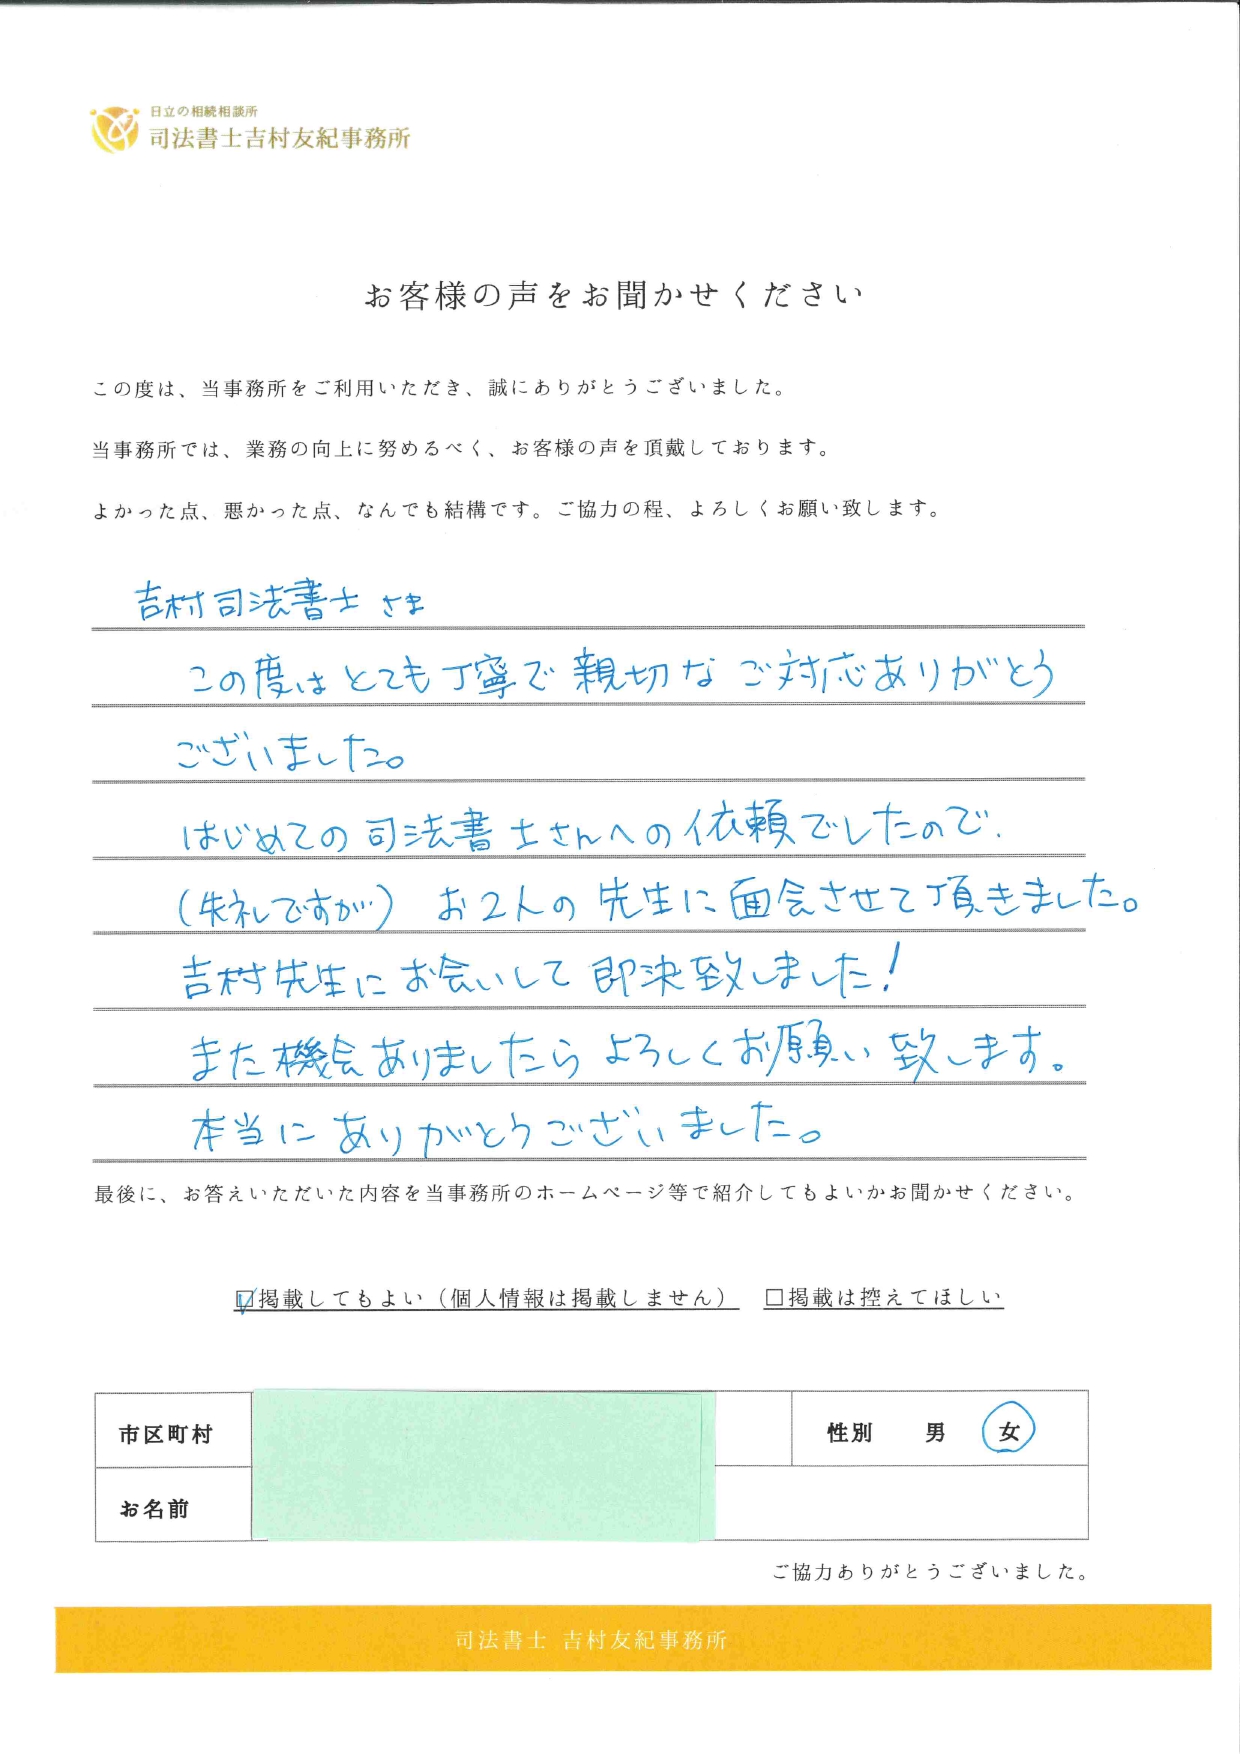 日立の相続相談所
司法書士吉村友紀事務所
お客様の声をお聞かせください
この度は、当事務所をご利用いただき、誠にありがとうございました。
当事務所では、業務の向上に努めるべく、お客様の声を頂戴しております。
よかった点、悪かった点、なんでも結構です。ご協力の程、よろしくお願い致します。
吉村司法書士さま
この度はとても丁寧で親切なご対応ありがとう
ございました。
はじめての司法書士さんへの依頼でしたので、
(失礼ですが) お2人の先生に面会させて頂きました。
吉村先生にお会いして即決致しました!
また機会ありましたらよろしくお願い致します。
本当にありがとうございました。
最後に、お答えいただいた内容を当事務所のホームページ等で紹介してもよいかお聞かせください。
☑掲載してもよい（個人情報は掲載しません） □掲載は控えてほしい
市区町村 性別 男 女
お名前
ご協力ありがとうございました。
司法書士 吉村友紀事務所